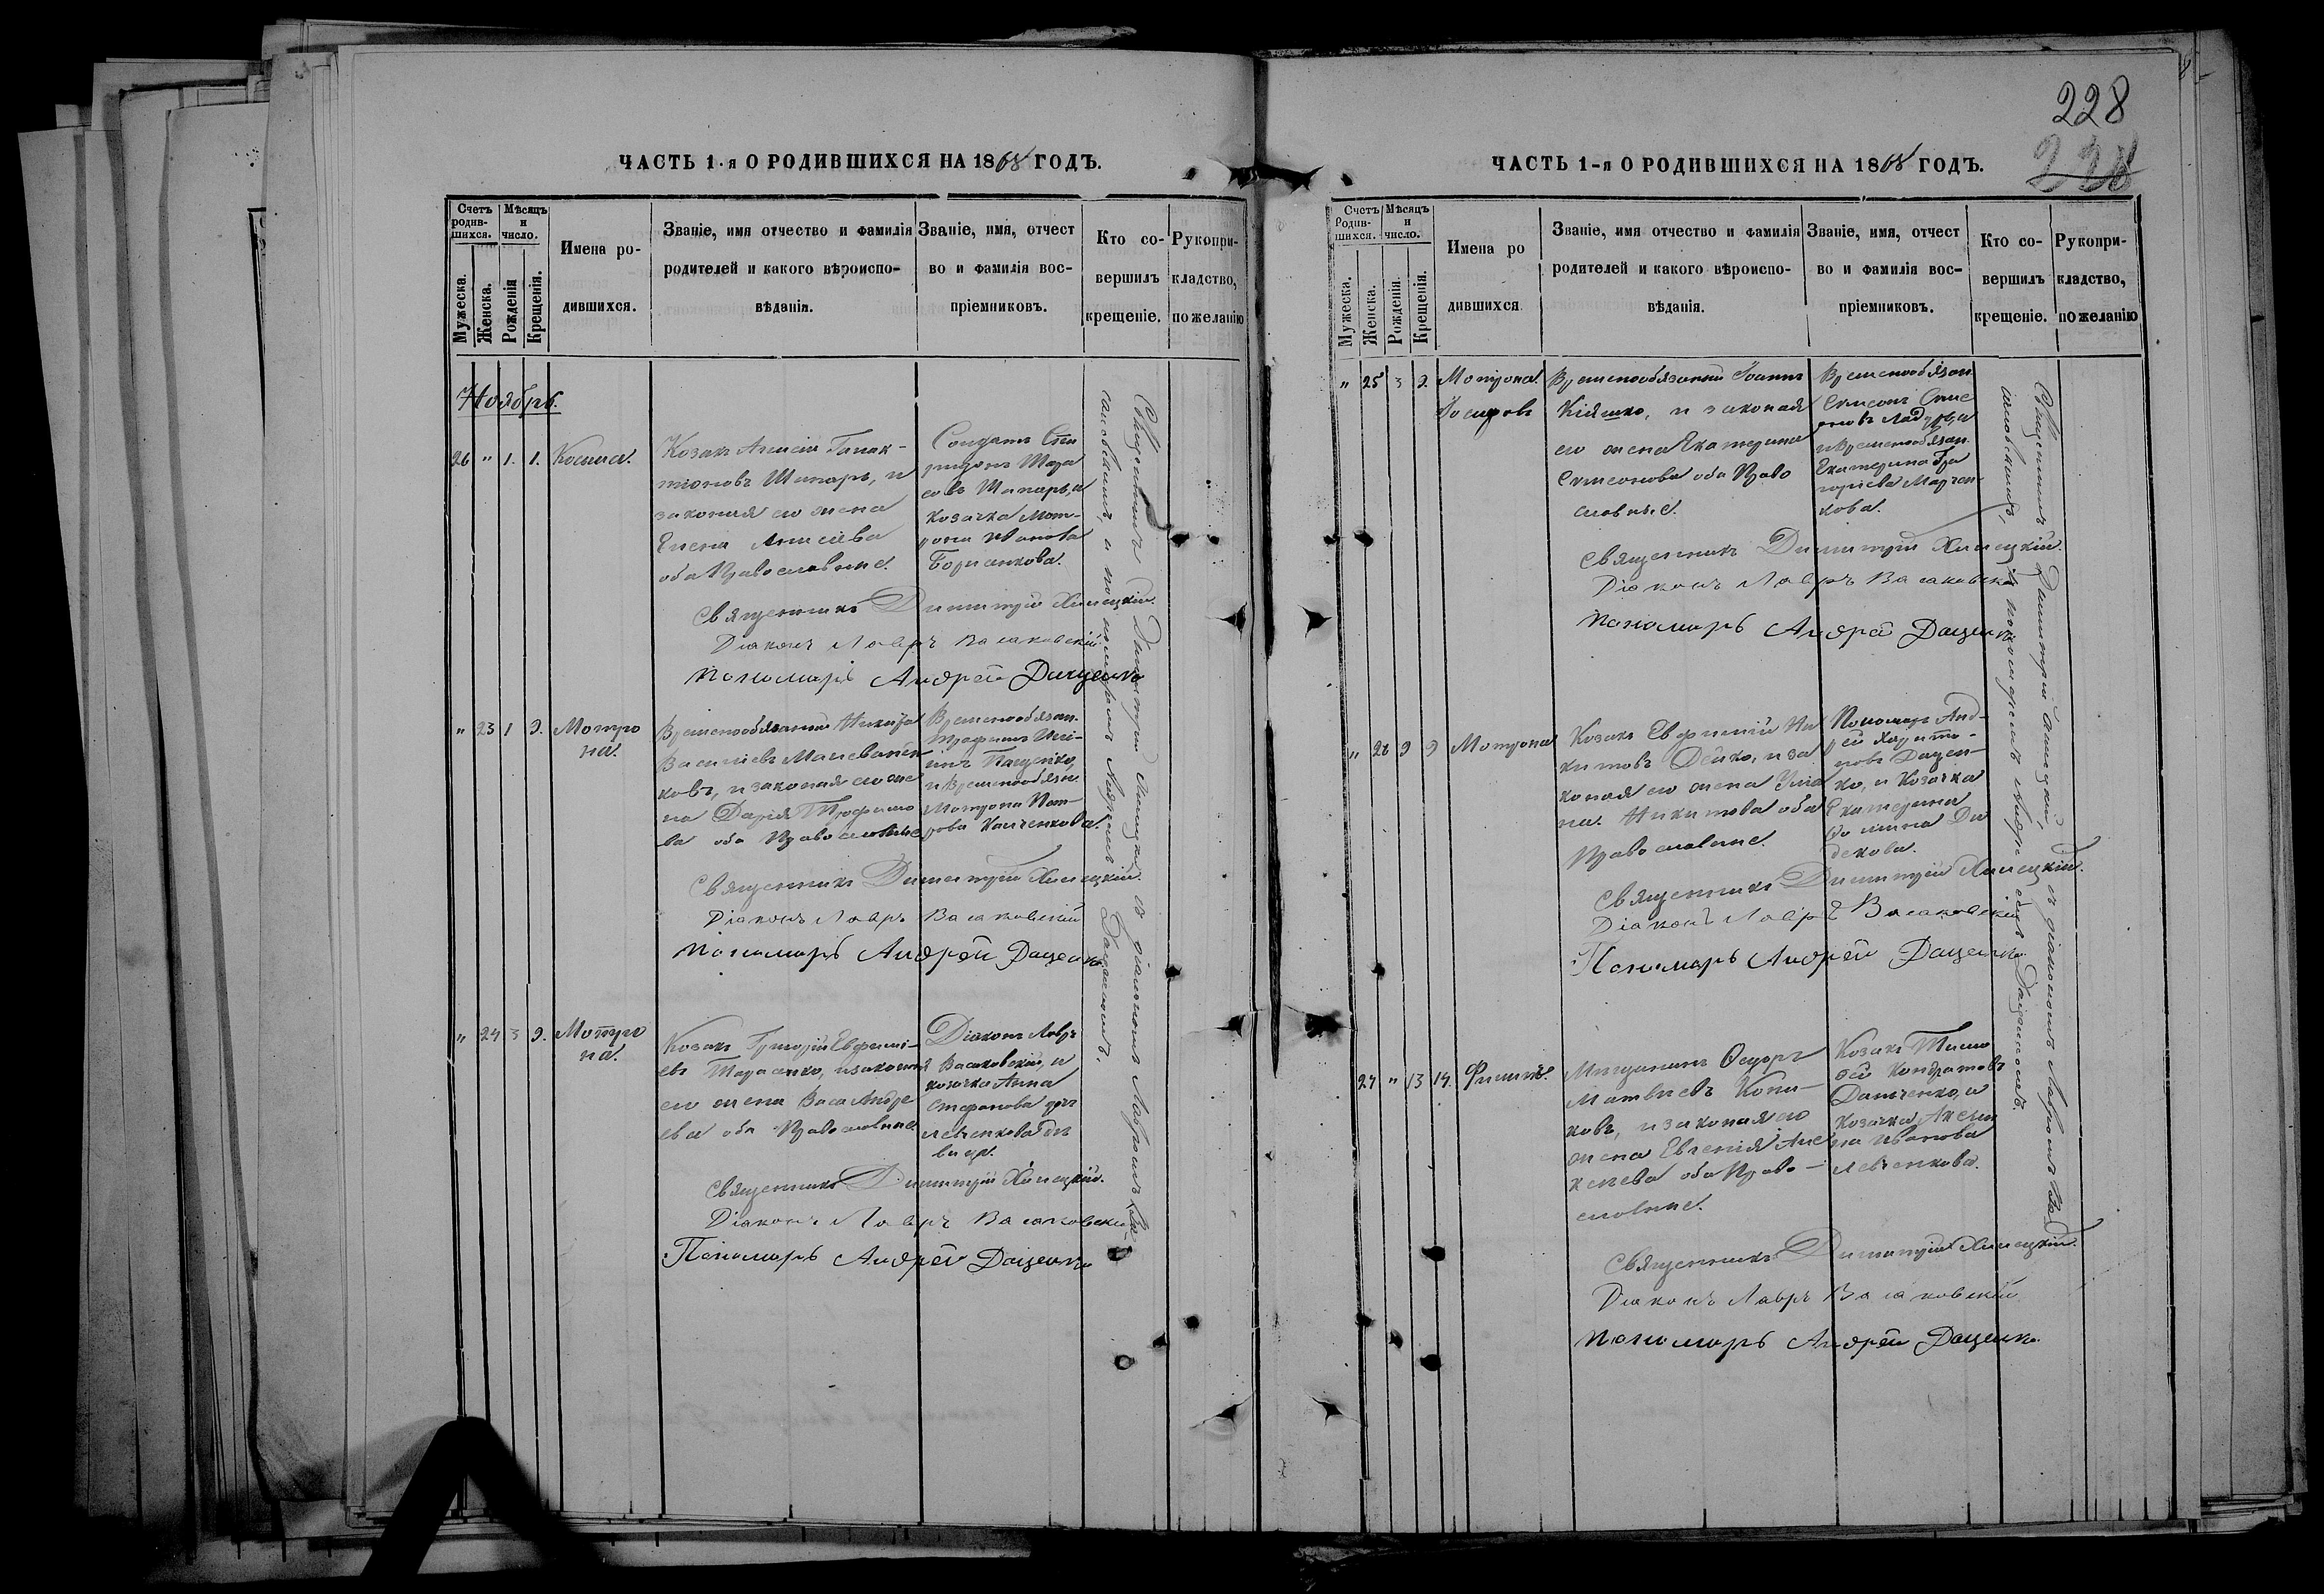 ЧАСТЬ 1-я О РОДИВШИХСЯ НА 1868 ГОДЪ.
Счетъ родив-шихся.
Мужеска.
Женска.
Мѣсяцъ и число.
Рожденія
Крещенія.
Имена ро-
дившихся.
Званіе, имя отчество и фамилія
родителей и какого вѣроиспо-
вѣданія.
Званіе, имя, отчест
во и фамилія вос-
пріемниковъ.
Кто со-
вершилъ
крещеніе.
Рукопри-
кладство,
по желанію
Ноябрь.
26 " 1. 1. Косьма.
Козакъ
Шапарь, и
законная его жена
Елена Алексіева
оба Православные.
Солдатъ Спи
ридонъ Тара
совъ Шапарь, и
козачка Мот-
рона Иванова
Борисенкова.
Священникъ Димитрій Хилецкій.
Діаконъ Лавръ Васаковскій
Пономарь Андрей Даценко
" 23 1 9. Мотро
на.
Временнообязанный Никита
Василіевъ
ковъ, и законная его же
на Дарія Трофимо
ва оба Православные
Временнообязан.
Трофимъ
Пащенко,
и Временнообязан
Мотрона Пет-
рова
Священникъ Димитрій Хилецкій.
Діаконъ Лавръ Васаковскій
Пономарь Андрей Даценко
" 24 3 9. Мотро
на.
Козакъ Григорій Евфимі-
евъ Тарасенко, и законная
его жена Васа Андре
ева оба Православные.
Діаконъ Лавръ
Васаковскій, и
козачка Анна
Стефанова
левченкова дѣ
вица.
Священникъ Димитрій Хилецкій.
Діаконъ Лавръ Васаковскій
Пономарь Андрей Даценко
Священникъ Димитрій Хилецкій съ діакономъ Лавромъ Ва
саковскимъ, и пономаремъ Андреемъ Даценкомъ.
228
228
ЧАСТЬ 1-я О РОДИВШИХСЯ НА 1868 ГОДЪ.
Счетъ Родив-шихся.
Мужеска.
Женска.
Мѣсяцъ и число.
Рожденія.
Крещенія.
Имена ро
дившихся
Званіе, имя отчество и фамилія
родителей и какого вѣроиспо-
вѣданія.
Званіе, имя, отчест
во и фамилія вос-
пріемниковъ.
Кто со-
вершилъ
крещеніе.
Рукопри-
кладство,
по желанію
" 25 3 9. Мотрона.
Временнообязанный Іоаннъ
Кіяшко, и законная
его жена Екатерина
Симеонова оба Право
славные.
Временнообязан.
Симеонъ Симе
оновъ
и Временнообязан.
Екатерина Гри
горіева Марчен-
кова.
Священникъ Димитрій Хилецкій.
Діаконъ Лавръ Васаковскій
Пономарь Андрей Даценко
" 26 9 9 Мотрона
Козакъ Евфимій Ни
китовъ Дейко, и за
конная его жена Улія
на Никитова оба
Православные.
Пономарь Анд-
рей Харито-
новъ Дацен-
ко, и Козачка
Екатерина
Священникъ Димитрій Хилецкій.
Діаконъ Лавръ Васаковскій
Пономарь Андрей Даценко
27 " 13 14. Филипъ.
Мѣщанинъ Ѳедоръ
Матвѣевъ Копи-
ковъ, и законная его
жена Евгенія Але
ксѣева оба Право-
славные.
Козакъ Тимо
ѳей Кондратовъ
Данченко, и
козачка Аксені
на Иванова
левченкова.
Священникъ Димитрій Хилецкій.
Діаконъ Лавръ Васаковскій
Пономарь Андрей Даценко
Священникъ Димитрій Хилецкій, съ діакономъ Лавромъ Ва
саковскимъ, и пономаремъ Андреемъ Даценкомъ.